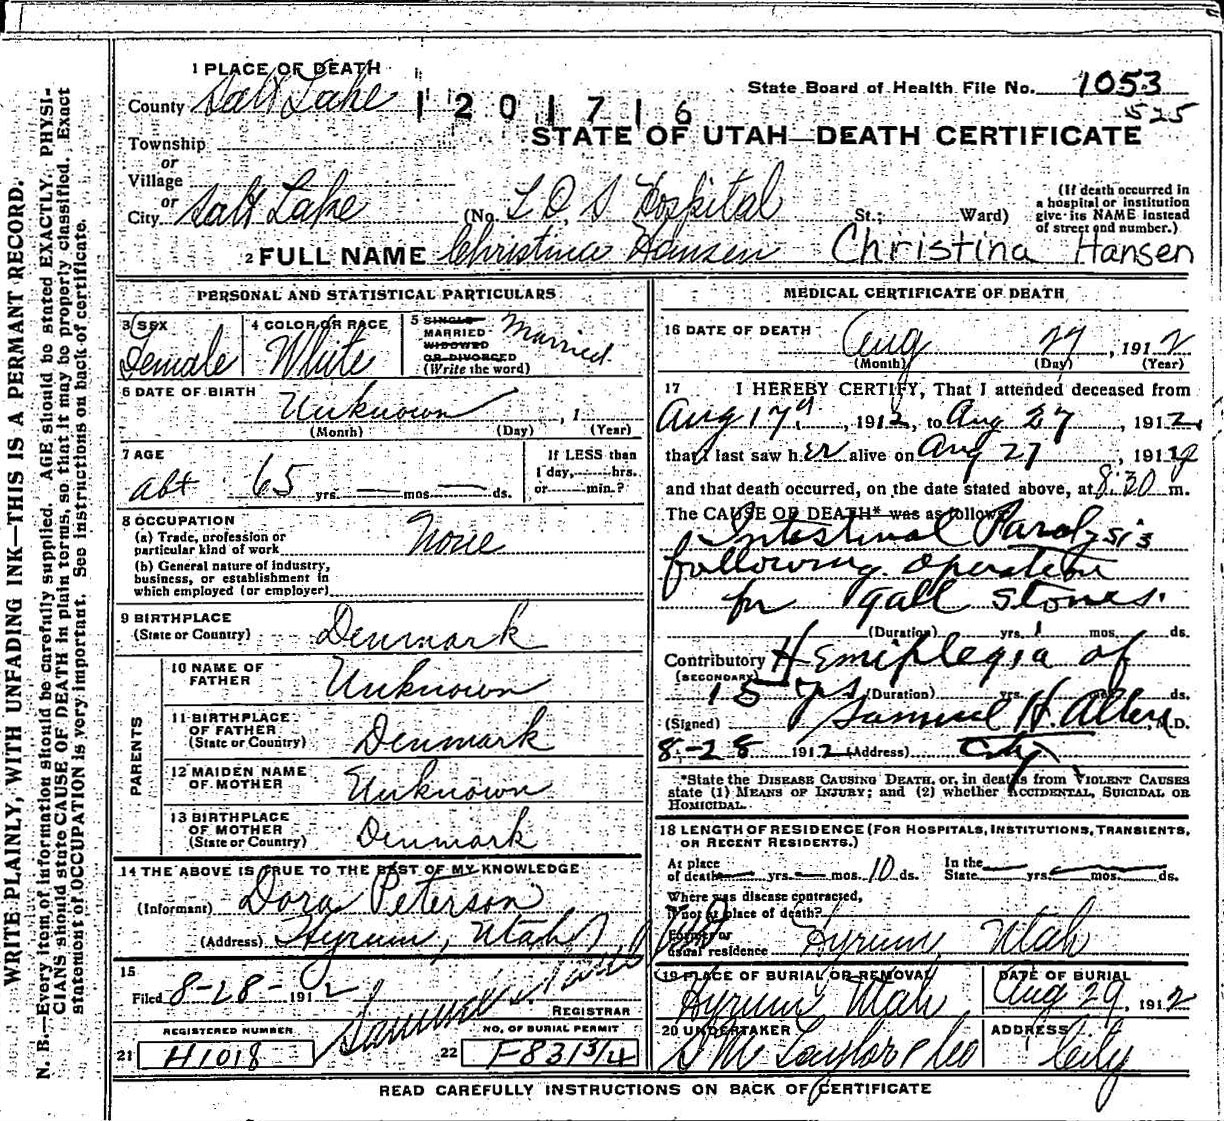 1 PLACE OF DEATH
County Salt Lake
1201716
State Board of Health File No. 1053
525
STATE OF UTAH—DEATH CERTIFICATE
Township
or
Village
or
City Salt Lake (No. L D S Hospital St.; Ward)
(If death occurred in
a hospital or institution
give its NAME instead
of street and number.)
2 FULL NAME Christina Hansen Christina Hansen
PERSONAL AND STATISTICAL PARTICULARS
3 SEX
Female
4 COLOR OR RACE
White
5 SINGLE
MARRIED
WIDOWED
OR DIVORCED
(Write the word)
Married
6 DATE OF BIRTH
Unknown , 1
(Month) (Day) (Year)
7 AGE
abt 65 yrs. — mos. — ds.
If LESS than
1 day, hrs.
or min.?
8 OCCUPATION
(a) Trade, profession or
particular kind of work None
(b) General nature of industry,
business, or establishment in
which employed (or employer)
9 BIRTHPLACE
(State or Country) Denmark
PARENTS
10 NAME OF
FATHER Unknown
11 BIRTHPLACE
OF FATHER
(State or Country) Denmark
12 MAIDEN NAME
OF MOTHER Unknown
13 BIRTHPLACE
OF MOTHER
(State or Country) Denmark
14 THE ABOVE IS TRUE TO THE BEST OF MY KNOWLEDGE
(Informant) Dora Peterson
(Address) Hyrum, Utah
15
Filed 8-28- 1912
REGISTRAR
REGISTERED NUMBER
21 H1018
NO. OF BURIAL PERMIT
22 F831 3/4
MEDICAL CERTIFICATE OF DEATH
16 DATE OF DEATH
Aug 27, 1912
(Month) (Day) (Year)
17 I HEREBY CERTIFY, That I attended deceased from
Aug 17, 1912, to Aug 27, 1912,
that I last saw her alive on Aug 27, 1912
and that death occurred, on the date stated above, at 8:30 m.
The CAUSE OF DEATH* was as follows:
Intestinal Paralysis
following operation
for gall stones.
(Duration) yrs. mos. ds.
Contributory Hemiplegia of
(SECONDARY)
15 yrs (Duration) yrs. mos. ds.
(Signed) Samuel H. Allen M.D.
8-28 1912 (Address) City
*State the DISEASE CAUSING DEATH, or, in deaths from VIOLENT CAUSES
state (1) MEANS OF INJURY; and (2) whether ACCIDENTAL, SUICIDAL OR
HOMICIDAL.
18 LENGTH OF RESIDENCE (FOR HOSPITALS, INSTITUTIONS, TRANSIENTS,
OR RECENT RESIDENTS.)
At place
of death — yrs. — mos. 10 ds.
In the
State — yrs. — mos. ds.
Where was disease contracted,
if not at place of death?
Former or
usual residence Hyrum, Utah
19 PLACE OF BURIAL OR REMOVAL
Hyrum Utah
DATE OF BURIAL
Aug 29, 1912
20 UNDERTAKER
S M Taylor & Co
ADDRESS
City
READ CAREFULLY INSTRUCTIONS ON BACK OF CERTIFICATE
WRITE PLAINLY, WITH UNFADING INK—THIS IS A PERMANT RECORD.
N. B.—Every item of information should be carefully supplied. AGE should be stated EXACTLY. PHYSI-
CIANS should state CAUSE OF DEATH in plain terms, so that it may be properly classified. Exact
statement of OCCUPATION is very important. See instructions on back of certificate.